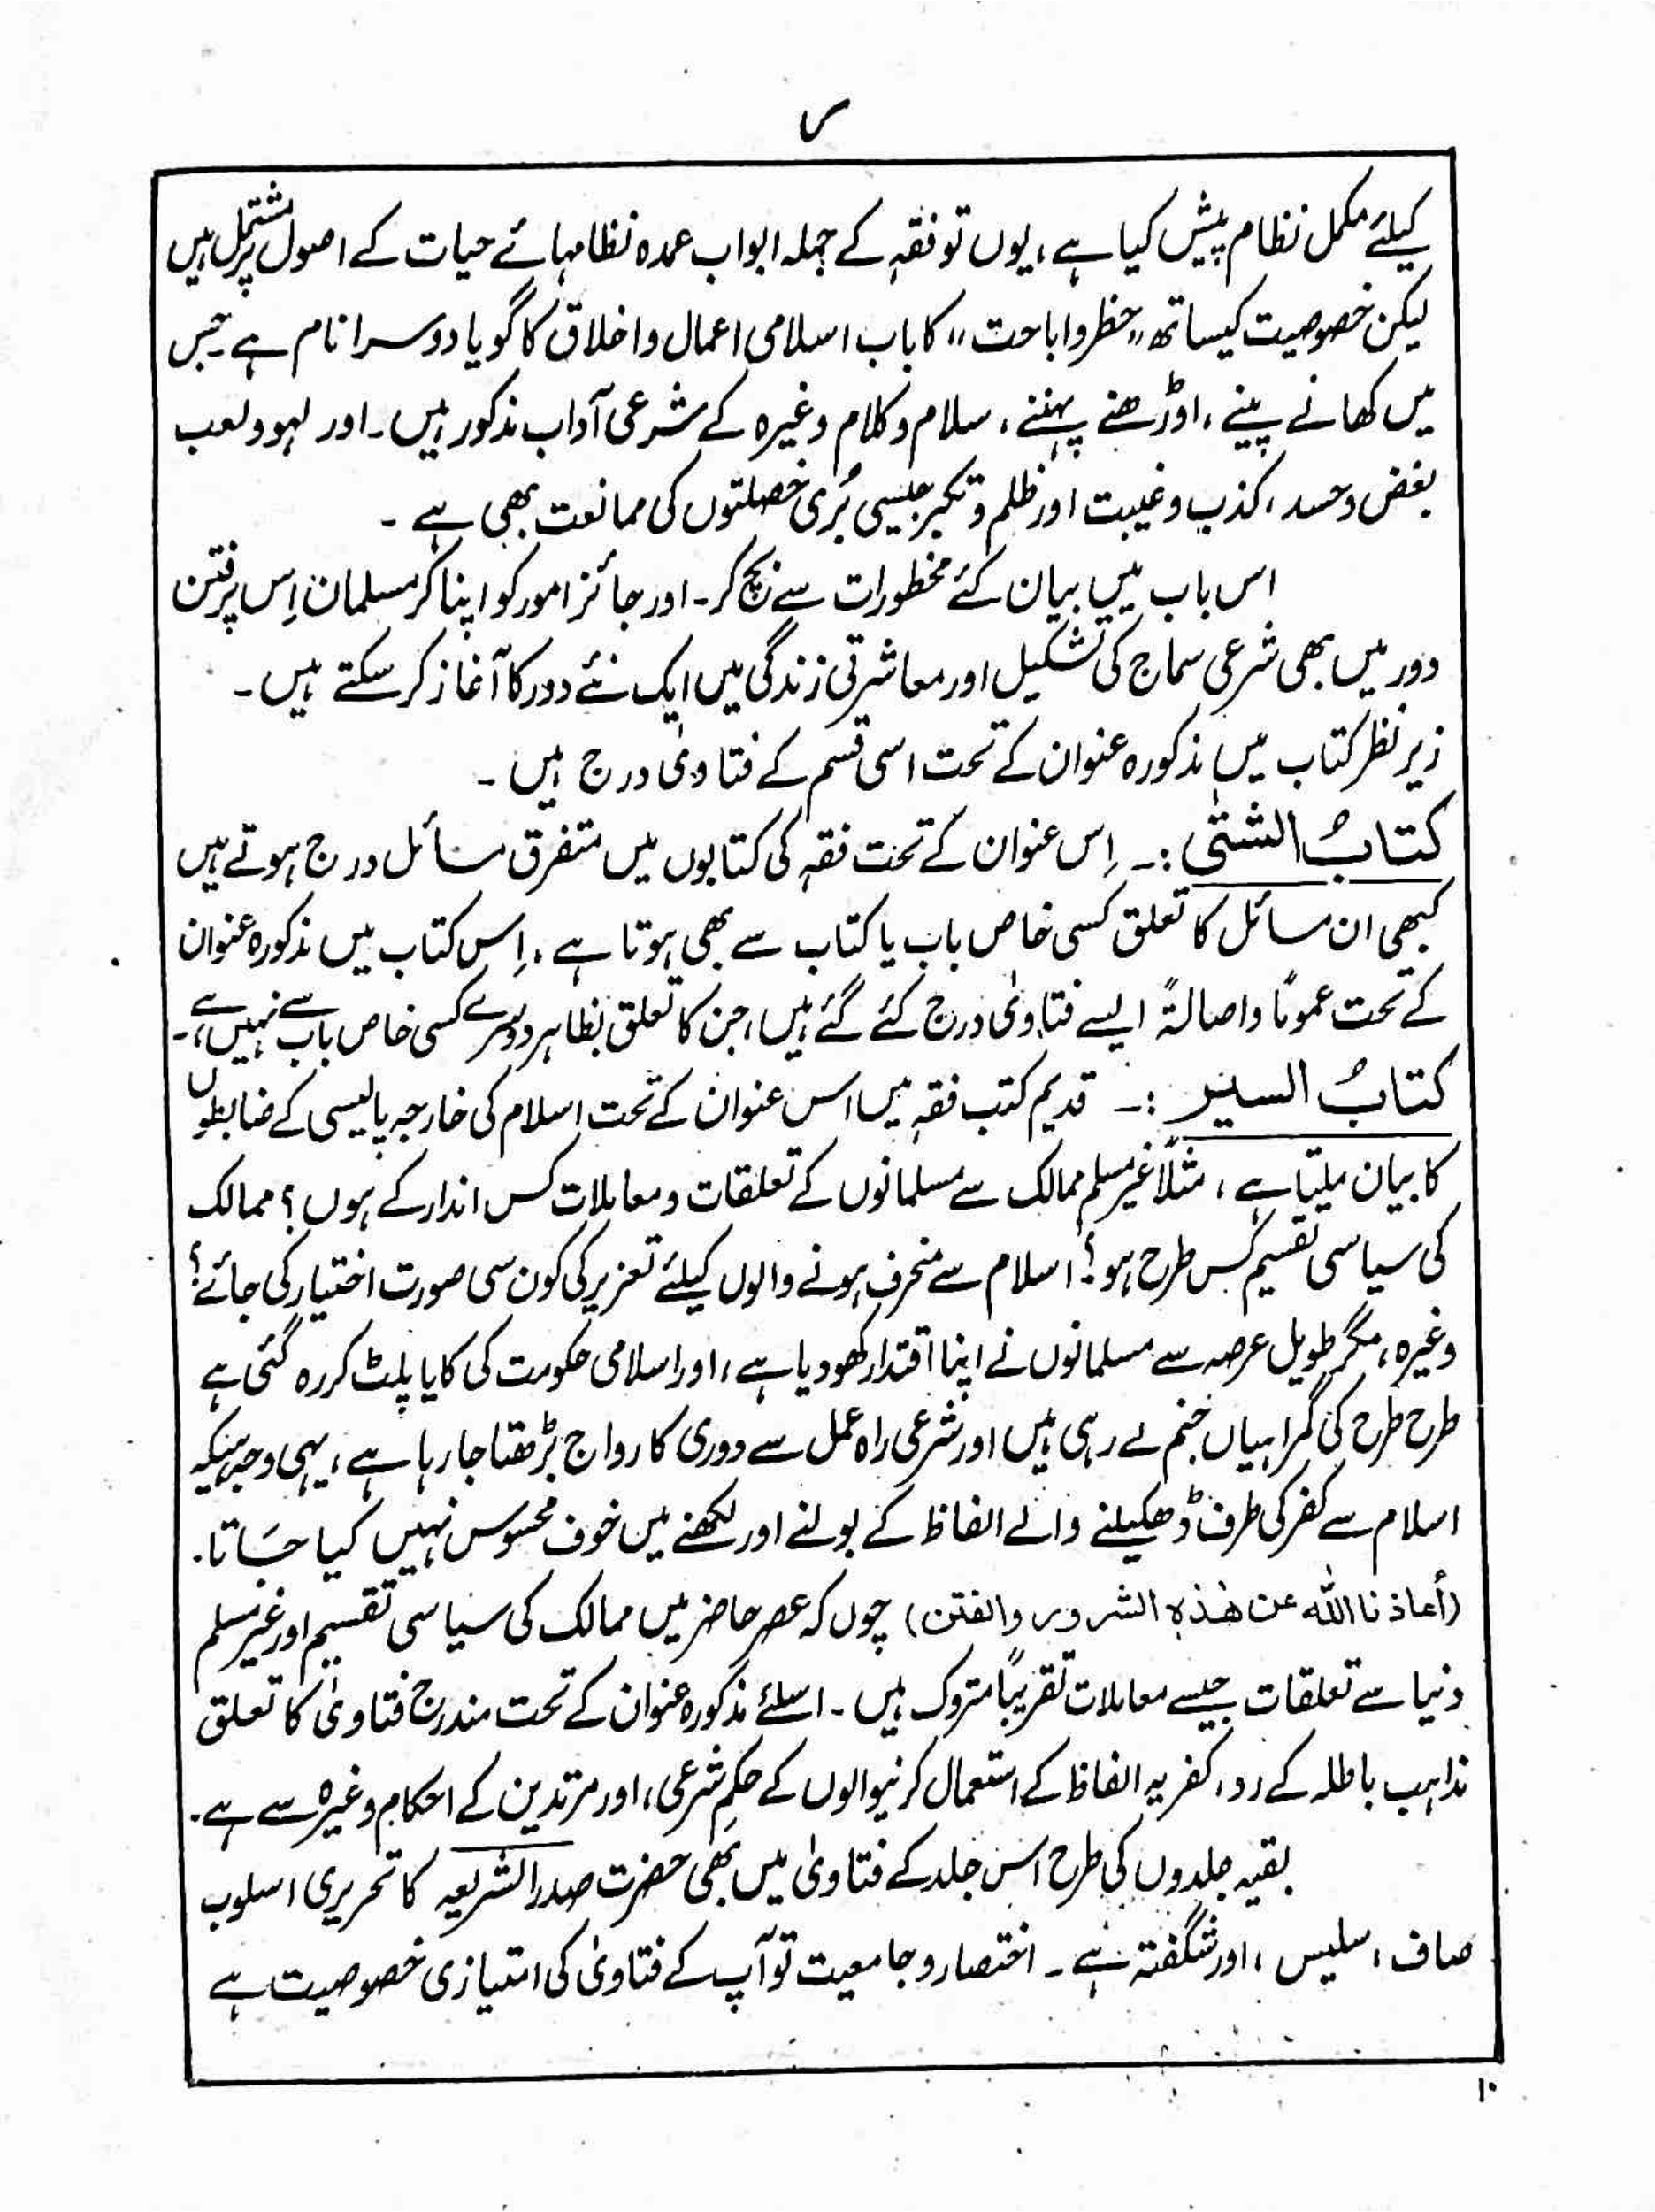 س
کیلئے مکمل نظام پیش کیا ہے، یوں تو فقہ کے جملہ ابواب عمدہ نظامہائے حیات کے اصول پر مشتمل ہیں
لیکن خصوصیت کیساتھ "حظر واباحت" کا باب اسلامی اعمال واخلاق کا گویا دوسرا نام ہے جس
میں کھانے پینے، اوڑھنے پہننے، سلام وکلام وغیرہ کے شرعی آداب مذکور ہیں۔ اور لہو ولعب
بغض وحسد، کذب وغیبت اور ظلم وتکبر جیسی بُری خصلتوں کی ممانعت بھی ہے ۔
اس باب میں بیان کئے محظورات سے بچ کر۔ اور جائز امور کو اپنا کر مسلمان اِس پرفتن
دور میں بھی شرعی سماج کی تشکیل اور معاشرتی زندگی میں ایک نئے دور کا آغاز کر سکتے ہیں ۔
زیر نظر کتاب میں مذکورہ عنوان کے تحت اسی قسم کے فتاویٰ درج ہیں ۔
کتابُ الشتیٰ :۔ اِس عنوان کے تحت فقہ کی کتابوں میں متفرق مسائل درج ہوتے ہیں
کبھی ان مسائل کا تعلق کسی خاص باب یا کتاب سے بھی ہوتا ہے، اِس کتاب میں مذکورہ عنوان
کے تحت عموماً واصالۃً ایسے فتاویٰ درج کئے گئے ہیں، جن کا تعلق بظاہر دوسرے کسی خاص باب سے نہیں ہے۔
کتابُ السیر :۔ قدیم کتب فقہ میں اس عنوان کے تحت اسلام کی خارجہ پالیسی کے ضابطوں
کا بیان ملتا ہے، مثلاً غیر مسلم ممالک سے مسلمانوں کے تعلقات ومعاملات کس انداز کے ہوں؟ ممالک
کی سیاسی تقسیم کس طرح ہو؟ اسلام سے منحرف ہونے والوں کیلئے تعزیر کی کون سی صورت اختیار کی جائے؟
وغیرہ، مگر طویل عرصہ سے مسلمانوں نے اپنا اقتدار کھو دیا ہے، اور اسلامی حکومت کی کایا پلٹ کر رہ گئی ہے
طرح طرح کی گمراہیاں جنم لے رہی ہیں اور شرعی راہ عمل سے دوری کا رواج بڑھتا جا رہا ہے، یہی وجہ ہیکہ
اسلام سے کفر کی طرف ڈھکیلنے والے الفاظ کے بولنے اور لکھنے میں خوف محسوس نہیں کیا جَاتا۔
(أعاذنا اللہ عن ھٰذہ الشرور والفتن) چوں کہ عصر حاضر میں ممالک کی سیاسی تقسیم اور غیر مسلم
دنیا سے تعلقات جیسے معاملات تقریباً متروک ہیں ۔ اسلئے مذکورہ عنوان کے تحت مندرج فتاویٰ کا تعلق
مذاہب باطلہ کے رد، کفریہ الفاظ کے استعمال کرنیوالوں کے حکمِ شرعی، اور مرتدین کے احکام وغیرہ سے ہے۔
بقیہ جلدوں کی طرح اس جلد کے فتاویٰ میں بھی حضرت صدر الشریعہ کا تحریری اسلوب
صاف، سلیس، اور شگفتہ ہے ۔ اختصار وجامعیت تو آپ کے فتاویٰ کی امتیازی خصوصیت ہے
۱۰